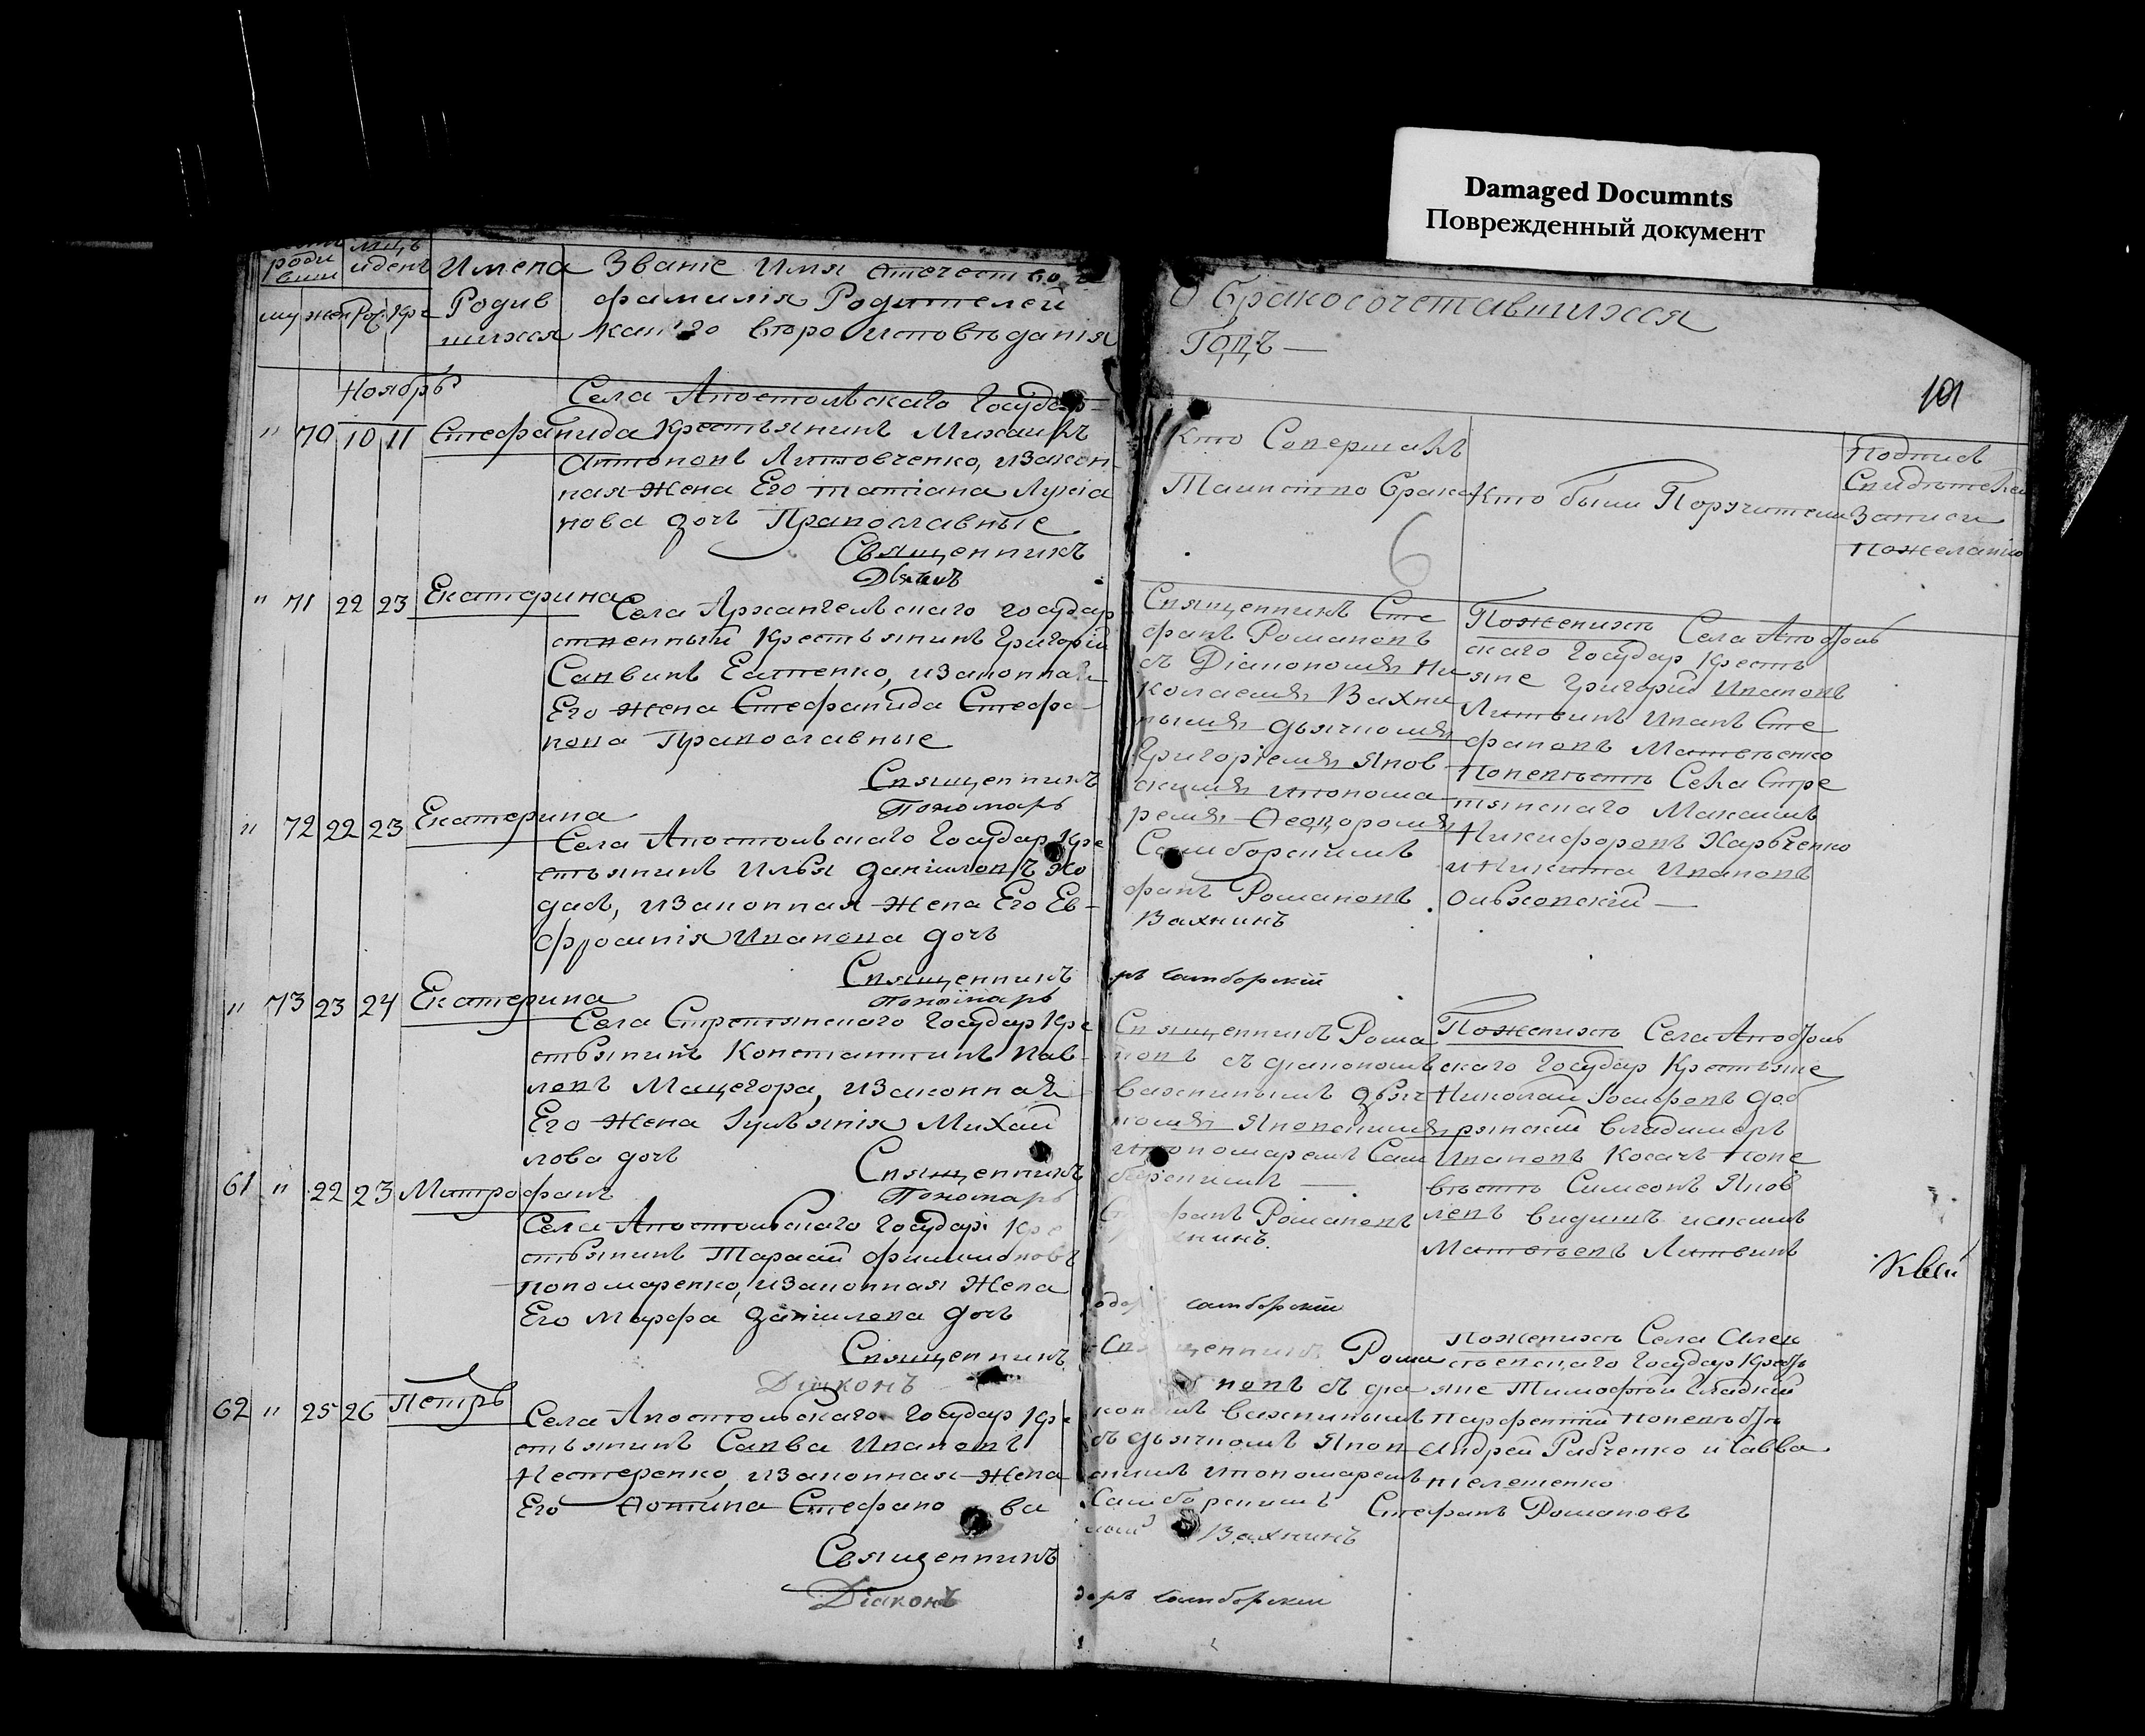 Damaged Documnts
Поврежденный документ
роди мцъ
вши иденъ Имена Званіе Имя Отечество и
му жен Рож Кре Родив фамилія Родителей
шихся какого вѣроисповѣданія
Ноябрь
Села Апостольскаго Государ-
" 70 10 11 Стефанида Крестьянинъ Михаилъ
Антоновъ Литовченко, изакон-
ная Жена Его Татіана Лукіа
нова дочь Православные
Священникъ
Дьякъ
" 71 22 23 Екатерина
Села Архангельскаго государ
ственный Крестьянинъ Григорій
Саввинъ Евтенко, изаконная
Его жена Стефанида Стефа
нова Православные
Священникъ
Пономарь
" 72 22 23 Екатерина
Села Апостольскаго Государ Кре
стьянинъ Илья Даніиловъ Хо
дасъ, изаконная Жена Его Ев-
фросинія Иванова дочь
Священникъ
Пономарь
" 73 23 24 Екатерина
Села Стретянскаго Государ Кре
стьянинъ Константинъ Пав-
ловъ Мащегора, изаконная
Его Жена Іульянія Михай
лова дочь
Священникъ
Пономарь
61 " 22 23 Митрофанъ
Села Апостольскаго Государ Кре
стьянинъ Тарасій Филимоновъ
Пономаренко, изаконная Жена
Его Марфа Даніилова дочь
Священникъ
Діаконъ
62 " 25 26 Петръ
Села Апостольскаго Государ Кре
стьянинъ Савва Ивановъ
Нестеренко, изаконная Жена
Его Фотина Стефано ва
Священникъ
Діаконъ
О Бракосочетавшихся
Годъ —
101
Кто Совершалъ
Таинство Брака
6
Кто были Поручители
Подпись
Свидѣтелей
Записи
Пожеланію
Священникъ Сте
фанъ Романовъ
съ Діакономъ Ни
колаемъ Вахни
нымъ дьячкомъ
Григоріемъ Янов
скимъ ипонома
ремъ Ѳеодоромъ
Самборскимъ
фанъ Романовъ
Вахнинъ
ръ Самборскій
Поженихѣ Села Апостоль
скаго Государ Кресть
яне Григорій Ивановъ
Литвинъ Иванъ Сте
фановъ Матвѣенко
Поневѣстѣ Села Стре
тянскаго Максимъ
Никифоровъ Харченко
иНикита Ивановъ
Ольховскій —
Священникъ Рома
новъ съ діакономъ
Вахнинымъ дьяч
комъ Яновскимъ
ипономаремъ Сам
борскимъ —
фанъ Романовъ
нинъ.
Самборскій
Поженихѣ Села Апостоль
скаго Государ Крестьяне
Николай Іосифовъ Доб
рянскій Владимеръ
Ивановъ Косачъ Поне
вѣстѣ Симеонъ Яков
левъ
Матвѣевъ Литвинъ
Рома
новъ съ діа
кономъ Вахнинымъ
съ дьячкомъ Янов
скимъ ипономаремъ
Самборскимъ
Стефанъ Романовъ
Вахнинъ
доръ Самборскій
Поженихѣ Села Алек
сѣевскаго Государ Кресть
яне Тимофей Гладкій
Парфентій Поневѣстѣ
Андрей Рябченко иСавва
Телешенко